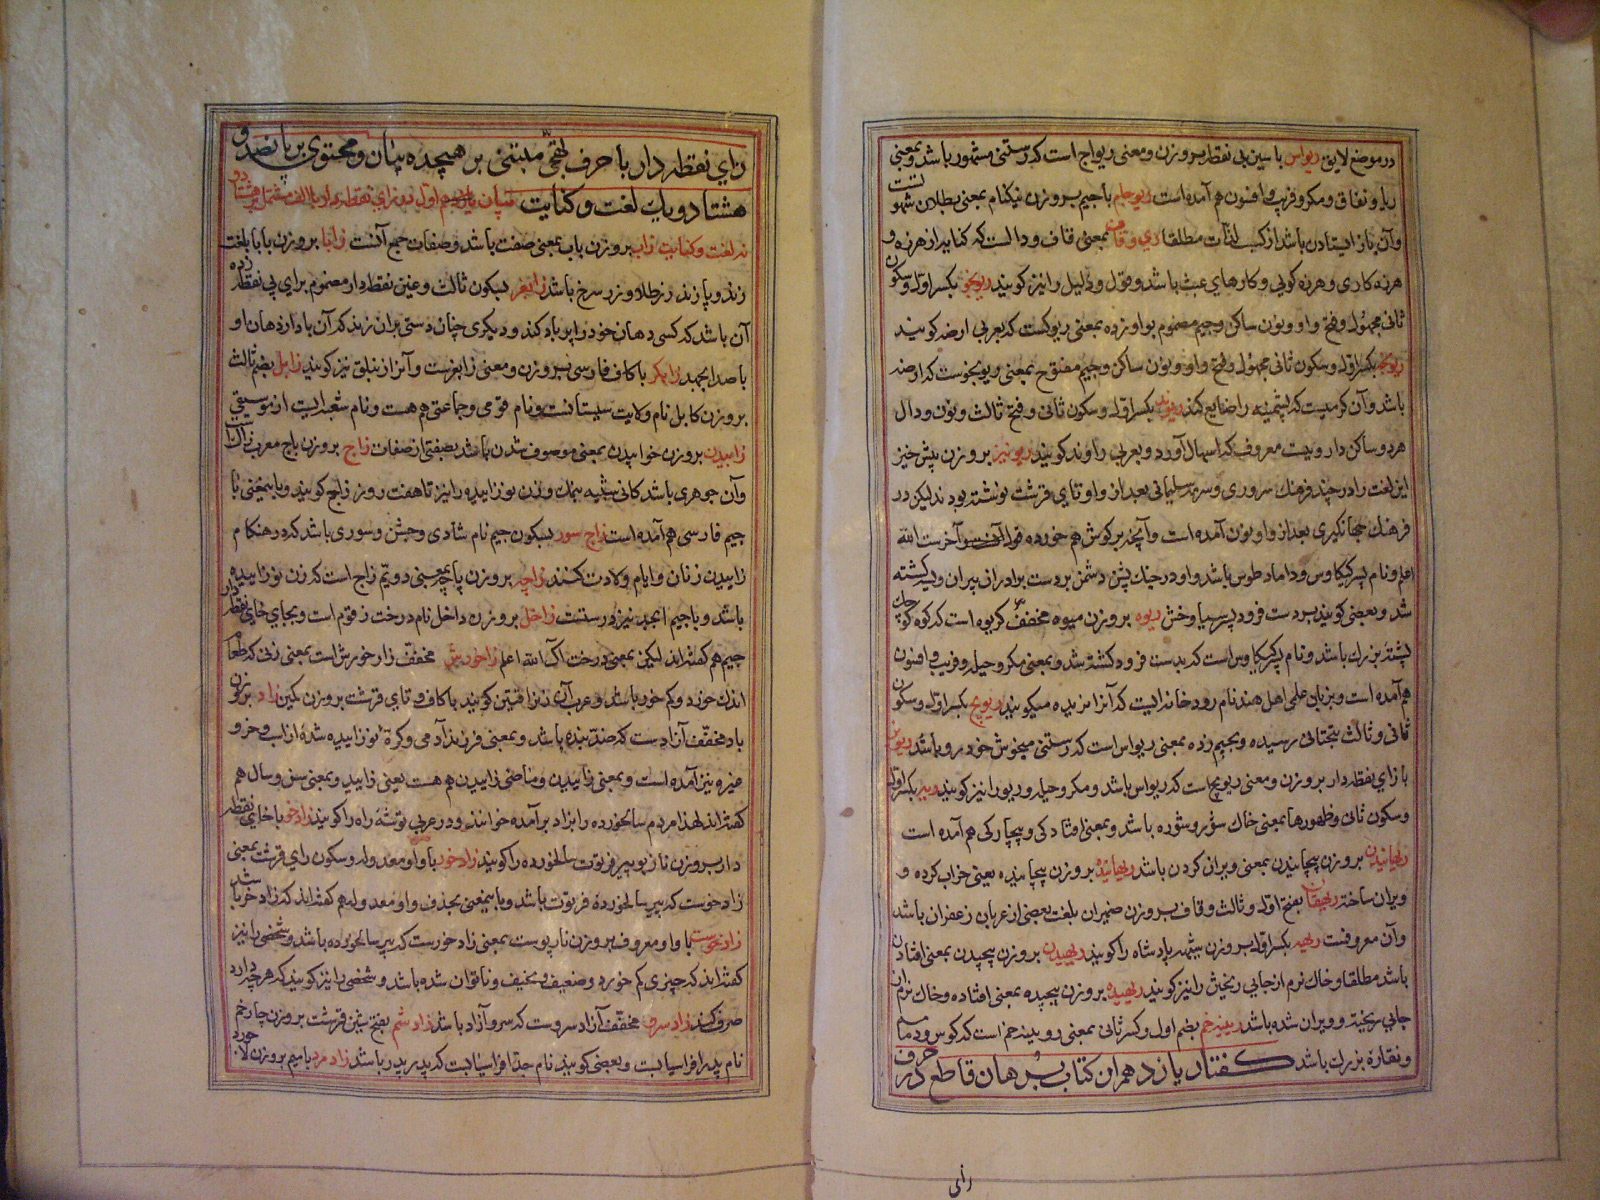 در موضع لایق ریواس با سین بی نقطه بر وزن و معنی ریواج است که رستنی مشهور باشد و بمعنی
ریا و نفاق و مکر و فریب و افسون هم آمده است ریوجام با جیم بر وزن نیکنام بمعنی بطلان شهوتست
و آن باز ایستادن باشد از کسب لذّات مطلقا ری و قاف بمعنی قاف و دالست که کنایه از هرزه و
هرزه کاری و هرزه کویی و کارهای عبث باشد و قول و دلیل را نیز کویند ریونجو بکسر اوّل و سکون
ثانی مجهول و فتح واو و نون ساکن و جیم مضموم بواو زده بمعنی ریوکست که بعربی ارضه کویند
ریونجه بکسر اوّل و سکون ثانی مجهول و فتح واو و نون ساکن و جیم مفتوح بمعنی ریونجوست که ارضه
باشد و آن کرمیست که پشمینه را ضایع کند ریوند بکسر اوّل و سکون ثانی و فتح ثالث و نون و دال
هر دو ساکن داروییست معروف که اسهال آورد و بعربی راوند کویند ریونیز بر وزن پیش خیز
این لغت را در چند فرهنک سروری و سرمه سلیمانی بعد از واو تای قرشت نوشته بودند لیکن در
فرهنک جهانکیری بعد از واو نون آمده است و آنچه بر کوش هم خورده الله
اعلم و نام پسر کیکاوس و داماد طوس باشد و او در جنک پشن دشمن بر دست برادران پیران ویسه کشته
شد و بعضی کویند بر دست فرود پسر سیاوخش ریوه بر وزن میوه مخفف کریوه است که کوه کوچک
پشته بزرک باشد و نام پسر کیکاوس است که بدست فرود کشته شد و بمعنی مکر و حیله و فریب و افسون
هم آمده است و بزبان علمی اهل هند نام رودخانه ایست که آنرا نربده میکویند ریویج بکسر اوّل و سکون
ثانی و ثالث بتحتانی رسیده و بجیم زده بمعنی ریواس است که رستنی میخوش خودرو باشد ریویز
با زای نقطه دار بر وزن و معنی ریویج است که ریواس باشد و مکر و حیله و ریو را نیز کویند ریه بکسر اوّل
و سکون ثانی و ظهور ها بمعنی خاک شور و شوره باشد و بمعنی افتادکی و بیچارکی هم آمده است
ریهانیدن بر وزن پیچانیدن بمعنی ویران کردن باشد ریهانیده بر وزن پیچانیده یعنی خراب کرده و
ویران ساخته ریهقان بفتح اوّل و ثالث و قاف بر وزن ضیمران بلغت بعضی از عربان زعفران باشد
و آن معروفست ریهه بکسر اوّل بر وزن شیهه پادشاه را کویند ریهیدن بر وزن پیچیدن بمعنی افتادن
باشد مطلقا و خاک نرم از جایی ریختن را نیز کویند ریهیده بر وزن پیچیده بمعنی افتاده و خاک نرم از
جایی ریخته و ویران شده باشد رییینه خم بضم اول و کسر ثانی بمعنی رویینه خم است که کوس و دمامه
و نقاره بزرک باشد کفتار یازدهم از کتاب برهان قاطع در حرف
زای
زای نقطه دار با حرف تهجّی مبتنی بر هیجده بیان و محتوی بر پانصد و
هشتاد و یک لغت و کنایت بیان اول در زای نقطه دار با الف مشتمل بر هشتاد
لغت و کنایت زاب بر وزن باب بمعنی صفت باشد و صفات جمع آنست زابا بر وزن بابا بلغت
زند و پازند زر طلا و زر سرخ باشد زابغر بسکون ثالث و غین نقطه دار مضموم برای بی نقطه زده
آن باشد که کسی دهان خود را پر باد کند و دیکری چنان دستی بر آن زند که آن باد از دهان او
با صدا بجهد زابکر با کاف فارسی بر وزن و معنی زابغرست و آنرا زنبلق نیز کویند زابل بضم ثالث
بر وزن کابل نام ولایت سیستانست و نام قومی و جماعتی هم هست و نام شعبه ایست از موسیقی
زابیدن بر وزن خوابیدن بمعنی موصوف شدن باشد بصفتی از صفات زاج بر وزن باج معرب زاک است
و آن جوهری باشد کانی شبیه بنمک و زن نو زاییده را نیز تا هفت روز زاج کویند و باینمعنی با
جیم فارسی هم آمده است زاج سور بسکون جیم نام شادی و جشن و سوری باشد که در هنکام
زاییدن زنان و ایام ولادت کنند زاچه بر وزن پاچه بمعنی دویّم زاج است که زن نو زاییده
باشد و با جیم ابجد نیز درستست زاخل بر وزن داخل نام درخت زقوم است و بجای خای نقطه دار
جیم هم کفته اند لیکن بمعنی درخت آک الله اعلم زاخورش مخفف زار خورش است بمعنی زنی که طعام
اندک خورد و کم خور باشد و عرب آن زنرا قتین کویند با کاف و تای قرشت بر وزن مکین زاد بر وزن
باد مخفف آزادست که ضدّ بنده باشد و بمعنی فرزند آدمی و کرّه نو زاییده شده از اسب و خر و
غیره نیز آمده است و بمعنی زاییدن و ماضی زاییدن هم هست یعنی زایید و بمعنی سن و سال هم
کفته اند لهذا مردم سالخورده را بزاد برآمده خوانند و در عربی توشهٔ راه را کویند زادخو با خای نقطه
دار بر وزن نازبو پیر فرتوت سالخورده را کویند زادخور با واو معدوله و سکون رای قرشت بمعنی
زادخوست که پیر سالخورده فرتوت باشد و باینمعنی بحذف واو معدوله هم کفته اند که زادخر باشد
زادخوست با واو معروف بر وزن نارپوست بمعنی زادخورست که پیر سالخورده باشد و شخصی را نیز
کفته اند که چیزی کم خورد و ضعیف و نحیف و ناتوان شده باشد و شخصی را نیز کویند که هر چه دارد
صرف کند زاد سرو مخفف آزاد سروست که سرو آزاد باشد زادشم بفتح شین قرشت بر وزن چارخم
نام پدر افراسیابست و بعضی کویند نام جدّ افراسیابست که پدر پدر باشد زادمرد با میم بر وزن لاجورد